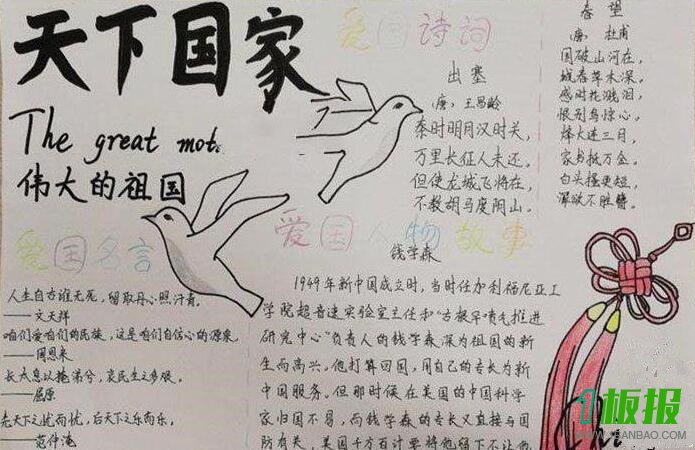 天下国家
The great mot
伟大的祖国
爱国名言
人生自古谁无死，留取丹心照汗青。
——文天祥
咱们爱咱们的民族，这是咱们自信心的源泉。
——周恩来
长太息以掩涕兮，哀民生之多艰。
——屈原
先天下之忧而忧，后天下之乐而乐。
——范仲淹
爱国诗词
出塞
（唐）王昌龄
秦时明月汉时关，
万里长征人未还。
但使龙城飞将在，
不教胡马度阴山。
春望
（唐）杜甫
国破山河在，
城春草木深。
感时花溅泪，
恨别鸟惊心。
烽火连三月，
家书抵万金。
白头搔更短，
浑欲不胜簪。
爱国人物故事
钱学森
1949年新中国成立时，当时任加利福尼亚工
学院超音速实验室主任和"古根罕喷气推进
研究中心"负责人的钱学森深为祖国的新
生而高兴。他打算回国，用自己的专长为新
中国服务。但那时候在美国的中国科学
家归国不易，而钱学森的专长又直接与国
防有关，美国千方百计要将他留下不让他
1板报
WWW.1BANBAO.COM